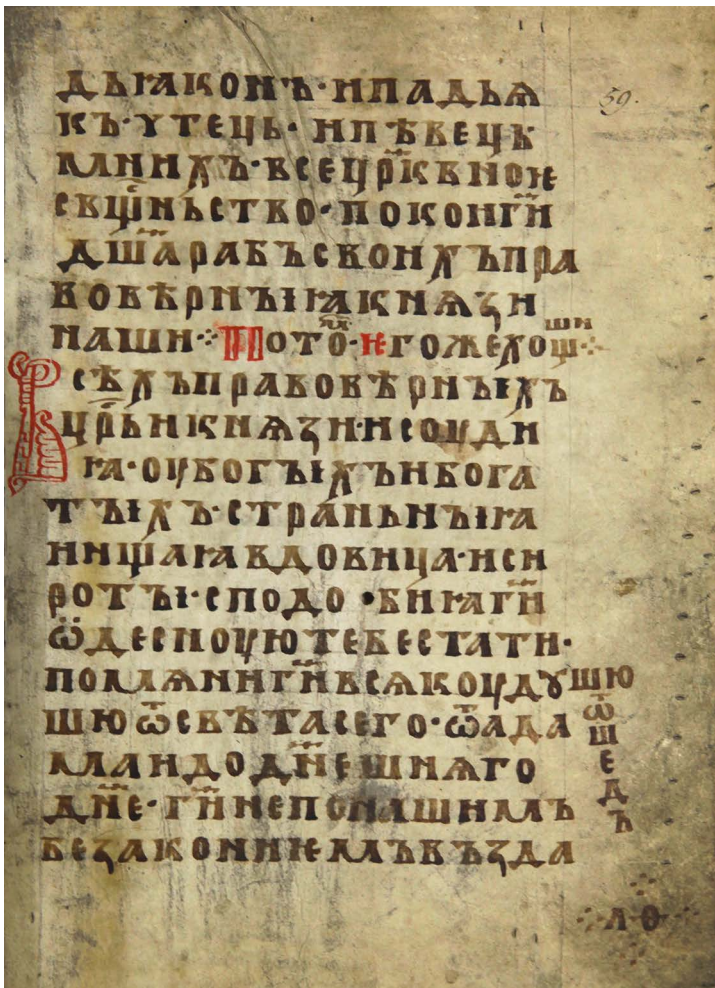 дьꙗконъ · и падьѧ
къ · чтець · и пѣвець
мнихъ · все црк҃вноѥ
свщ҃ньство · покои ги҃
59.
дш҃а рабъ своихъ пра
вовѣрнꙑꙗ кнѧзи
наши ⁘ По то҃ · ѥгоже хощ ши ⁘
Всѣхъ правовѣрнꙑхъ
цр҃ьи кнѧзии · и соуди
ꙗ · оубогꙑхъ и бога
тꙑхъ · страньнꙑꙗ
нищаꙗ вдовица · и си
ротꙑ · сподо · би ꙗ ги҃
ѿ десноую тебе стати ·
помѧни ги҃ всѧкоу дꙋшю
шю ѿ свѣта сего · ѿ ада
ѿшедъ
ма и до дн҃ешнѧго
дн҃е · ги҃ не понашимъ
безакониѥмъ възда
л ѳ